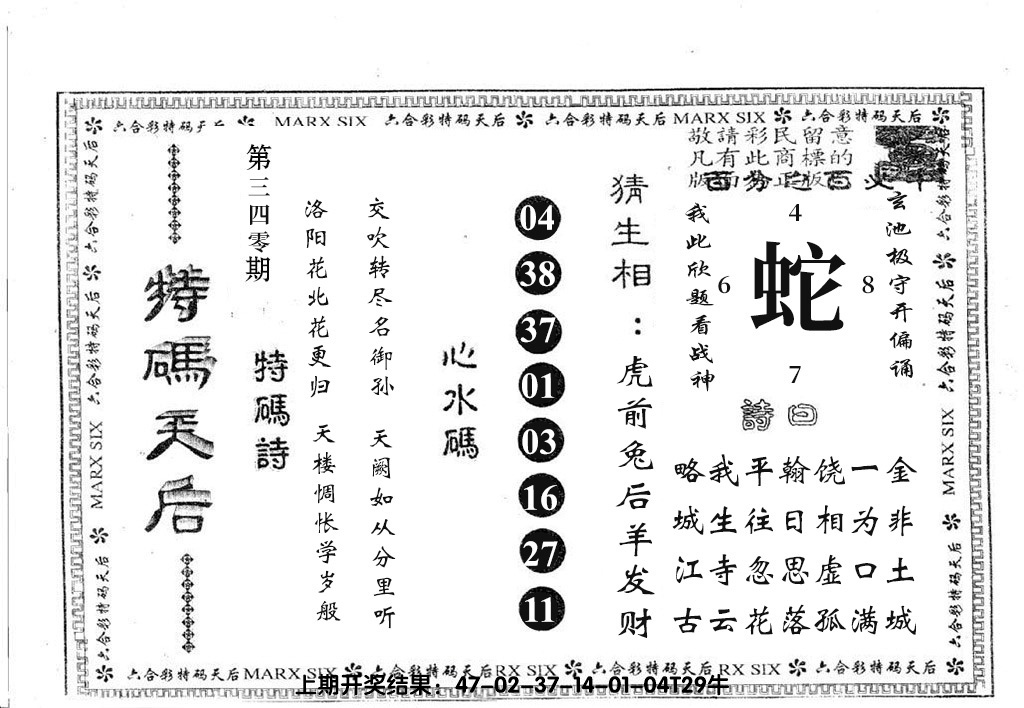 六合彩特码天后 MARX SIX 六合彩特码天后 六合彩特码天后 MARX SIX 六合彩特码天后
敬請彩民留意
凡有此商標的
版面为正版
百分之百
玄池极守开偏诵
4
6 蛇 8
7
我此欣题看战神
詩曰
金非土城
一为口满
饶相虚孤
翰日思落
平往忽花
我生寺云
略城江古
猜生相：虎前兔后羊发财
04
38
37
01
03
16
27
11
心水碼
交吹转尽名御孙 天阙如从分里听
洛阳花北花更归 天楼惆怅学岁般
特碼詩
第三四零期
特碼天后
六合彩特码天后 MARX SIX 六合彩特码天后
六合彩特码天后 MARX SIX 六合彩特码天后
六合彩特码天后 MARX SIX 六合彩特码天后 RX SIX 六合彩特码天后 RX SIX 六合彩特码天后
上期开奖结果：47-02-37-14-01-04T29牛